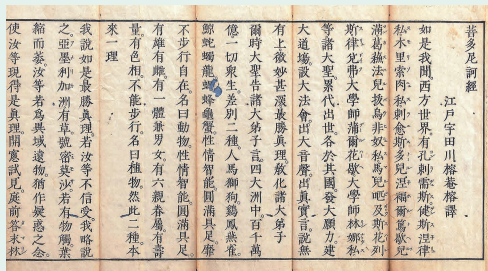 菩多尼訶經
江戸宇田川榕菴榕譯
如是我聞西方世界有孔剌需斯健斯涅律
私木里索肉私剌愈斯多兒涅福爾篤歇兒
滿葛蘇法兒拔爲非奴私馬兒吧及斯花列
斯律兒弗大學師蒲爾花歇大學師林娜私
等諸大聖累代出世各於其國發大願力建
大道場設大法會出大音聲出眞實言說無
有上微妙甚深最勝眞理敎化諸大弟子
爾時大聖告諸大弟子言四大洲中百千萬
億一切衆生差別二種人馬獅狗鷄鳳燕雀
鯨蛇蠋龍蠅蜂龜蟹性情智能圓滿具足靡
不步行自在名曰動物性情智能圓滿具足
有雄有雌有一體兼男女有六親眷屬有壽
量有色相不能步行名曰植物然此二種本
來一理
我說如是最勝眞理若汝等不信受我略說
之亞墨利加洲有草號密莫沙若有物觸葉
縮而萎汝等若爲異域遠物猶作疑惑之念
使汝等現得是眞理開悟試見庭前答末林